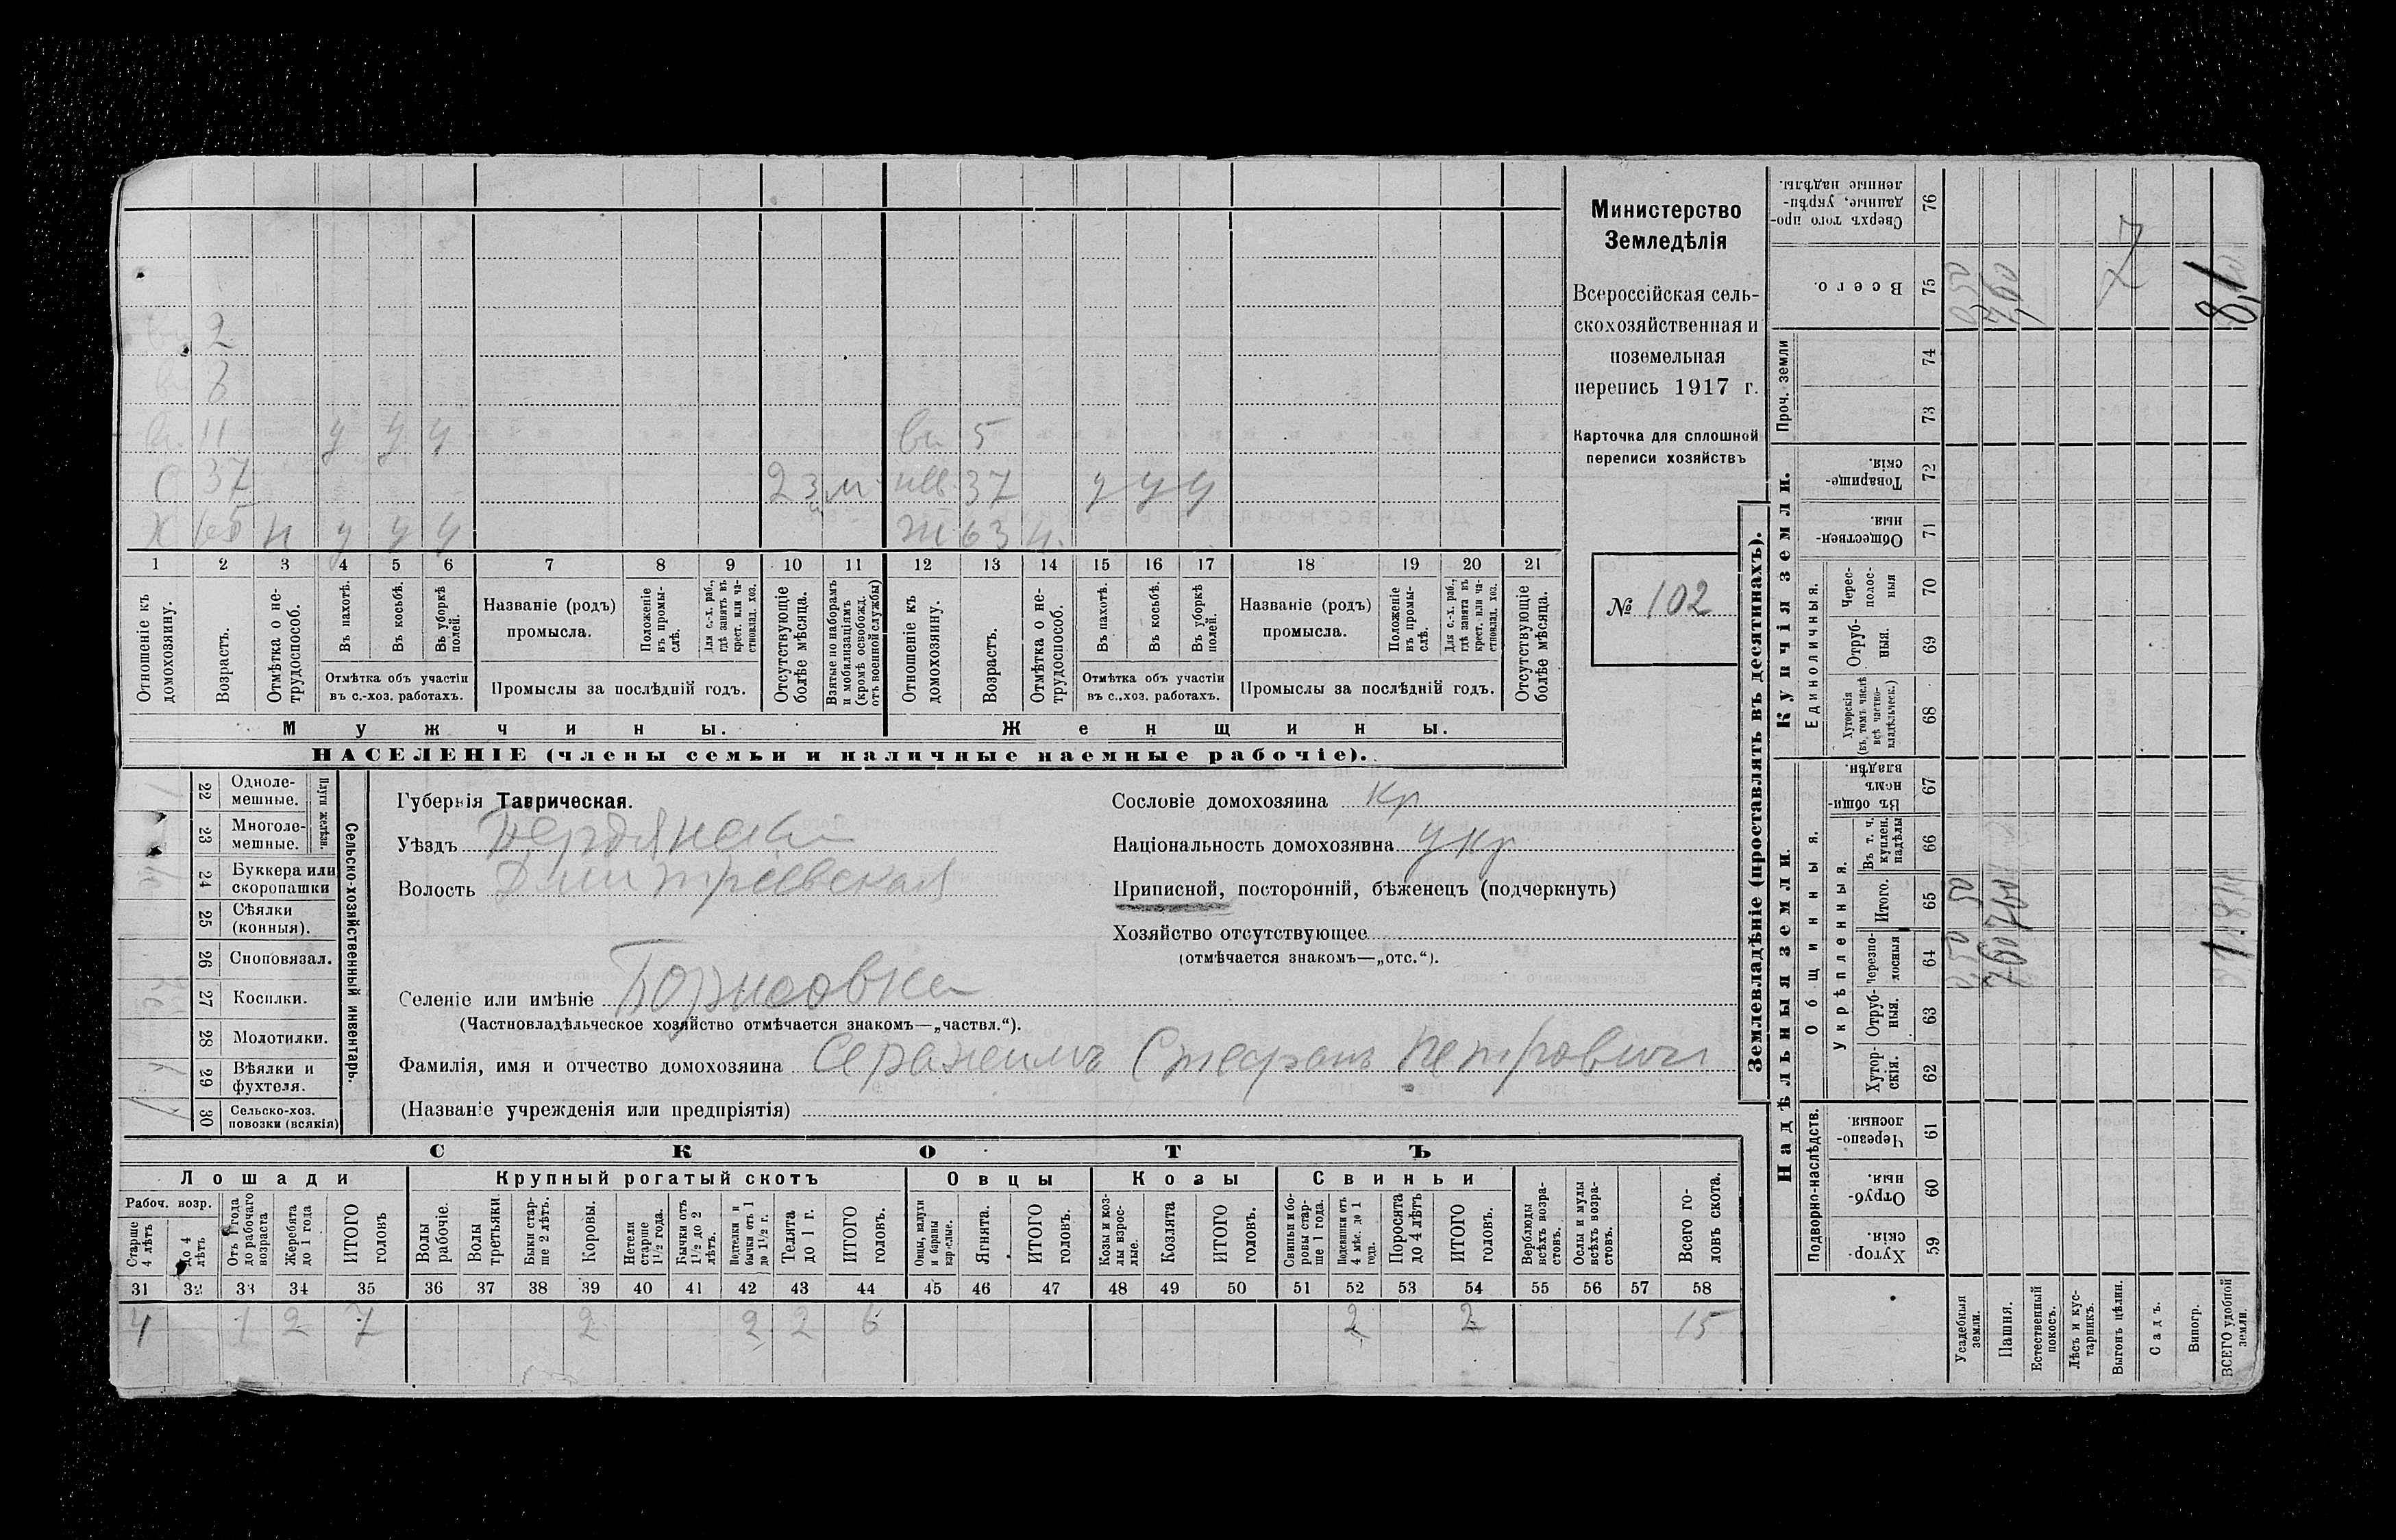 2
3
вн. 11 у у у вн 5
с 37 2 3 м. нев. 37 у у у
Х 65 н у у у ж 63 н.
1 2 3 4 5 6 7 8 9 10 11 12 13 14 15 16 17 18 19 20 21
Отношеніе къ домохозяину.
Возрастъ.
Отмѣтка о нетрудоспособ.
Въ пахотѣ.
Въ косьбѣ.
Въ уборкѣ полей.
Отмѣтка объ участіи
въ с.-хоз. работахъ.
Названіе (родъ)
промысла.
Положеніе въ промыслѣ.
Для с.-х. раб., гдѣ занятъ въ крест. или частновлад. хоз.
Промыслы за послѣдній годъ.
Отсутствующіе болѣе мѣсяца.
Взятые по наборамъ и мобилизаціямъ (кромѣ освобожд. отъ военной службы)
Отношеніе къ домохозяину.
Возрастъ.
Отмѣтка о нетрудоспособ.
Въ пахотѣ.
Въ косьбѣ.
Въ уборкѣ полей.
Отмѣтка объ участіи
въ с.-хоз. работахъ.
Названіе (родъ)
промысла.
Положеніе въ промыслѣ.
Для с.-х. раб., гдѣ занята въ крест. или частновлад. хоз.
Промыслы за послѣдній годъ.
Отсутствующіе болѣе мѣсяца.
Мужчины.
Женщины.
НАСЕЛЕНІЕ (члены семьи и наличные наемные рабочіе).
Министерство
Земледѣлія
Всероссійская сель-
скохозяйственная и
поземельная
перепись 1917 г.
Карточка для сплошной
переписи хозяйствъ
№ 102
Сельско-хозяйственный инвентарь.
Плуги желѣзн.
22 Одноле-
мешные.
23 Многоле-
мешные.
24 Буккера или
скоропашки
25 Сѣялки
(конныя).
26 Сноповязал.
27 Косилки.
28 Молотилки.
29 Вѣялки и
фухтеля.
30 Сельско-хоз.
повозки (всякія)
Губернія Таврическая.
Уѣздъ Бердянскій
Волость Дмитріевская
Селеніе или имѣніе Борисовка
(Частновладѣльческое хозяйство отмѣчается знакомъ—„частвл.“).
Фамилія, имя и отчество домохозяина Стефанъ Петровичъ
(Названіе учрежденія или предпріятія)
Сословіе домохозяина кр
Національность домохозяина укр
Приписной, посторонній, бѣженецъ (подчеркнуть)
Хозяйство отсутствующее
(отмѣчается знакомъ—„отс.“).
СКОТЪ
Лошади
Крупный рогатый скотъ
Овцы
Козы
Свиньи
Рабоч. возр.
Старше 4 лѣтъ
до 4 лѣтъ
Отъ 1 года до рабочаго возраста
Жеребята до 1 года
ИТОГО головъ
Волы рабочіе.
Волы третьяки.
Быки старше 2 лѣтъ.
Коровы.
Нетели старше 1½ года.
Бычки отъ 1½ до 2 лѣтъ.
Подтелки и бычки отъ 1 до 1½ г.
Телята до 1 г.
ИТОГО головъ.
Овцы, валухи и бараны взрослые.
Ягнята.
ИТОГО головъ.
Козы и козлы взрослые.
Козлята
ИТОГО головъ.
Свиньи и боровы старше 1 года.
Подсвинки отъ 4 мѣс. до 1 года.
Поросята до 4 лѣтъ
ИТОГО головъ.
Верблюды всѣхъ возрастовъ.
Ослы и мулы всѣхъ возрастовъ.
Всего головъ скота.
31 32 33 34 35 36 37 38 39 40 41 42 43 44 45 46 47 48 49 50 51 52 53 54 55 56 57 58
4 1 2 7 2 2 2 6 2 2 15
Землевладѣніе (проставлять въ десятинахъ).
Купчія земли.
Надѣльныя земли.
Проч. земли
Единоличныя.
Общинныя.
Укрѣпленныя.
Подворно-наслѣдств.
Сверхъ того проданные, укрѣпленные надѣлы. 76
Всего. 75
74
73
Товарищескія. 72
Общественныя. 71
Чересполосныя 70
Отрубныя. 69
Хуторскія (въ томъ числѣ всѣ частновладѣльческ.) 68
Въ общинномъ владѣн. 67
Въ т. ч. куплен. надѣлы 66
Итого. 65
Черезполосныя 64
Отрубныя. 63
Хуторскія. 62
Черезполосныя 61
Отрубныя. 60
Хуторскія. 59
Усадебныя земли.
Пашня.
Естественный покосъ.
Лѣсъ и кустарникъ.
Выгонъ цѣлин.
Садъ.
Виногр.
ВСЕГО удобной земли.
0,50
7,60
7
8,1
0,50
50
760
760